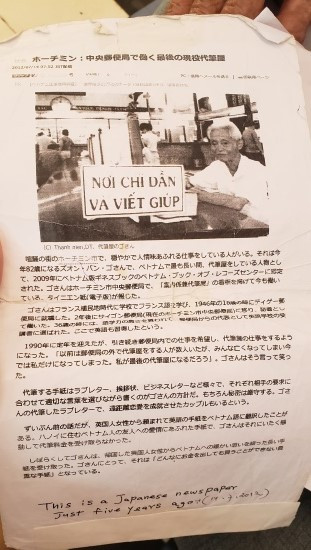 ホーチミン：中央郵便局で働く最後の現役代筆屋
NƠI CHỈ DẪN
VÀ VIẾT GIÚP
(C) Thanh nien,DT, 代筆屋のゴさん
喧騒の街のホーチミン市で、穏やかで人情味あふれる仕事をしている人がいる。それは今
年82歳になるズオン・バン・ゴさんで、ベトナムで最も長い間、代筆屋をしている人物とし
て、2009年にベトナム版ギネスブックのベトナム・ブック・オブ・レコーズセンターに認定
された。ゴさんはホーチミン市中央郵便局で、「案内係兼代筆屋」の看板を掲げて今も働い
ている。タイニエン紙(電子版)が報じた。
ゴさんはフランス植民地時代に学校でフランス語を学び、1946年の16歳の時にティゲー郵
便局に就職した。2年後にサイゴン郵便局(現在のホーチミン市中央郵便局)に移り、
1990年に定年を迎えたが、引き続き郵便局内での仕事を希望し、代筆屋の仕事をするよう
になった。「以前は郵便局の外で代筆屋をする人が数人いたが、みんな亡くなってしまい今
では私だけになってしまった。私が最後の代筆屋になるだろう」。ゴさんはそう言って笑っ
た。
代筆する手紙はラブレター、挨拶状、ビジネスレターなど様々で、それぞれ相手の要求に
合わせて適切な言葉を選びながら書くのがゴさんの方針だ。もちろん秘密は厳守する。ゴさ
んの代筆したラブレターで、遠距離恋愛を成就させたカップルもいるという。
ずいぶん前の話だが、英国人女性から頼まれて英語の手紙をベトナム語に翻訳したことが
ある。ハノイに住むベトナム人の友人への愛情にあふれた手紙で、ゴさんはそれにいたく感
動して代筆料金を受け取らなかった。
しばらくしてゴさんは、帰国した英国人女性からベトナムへの懐かしい思いを綴った長い手
紙を受け取った。ゴさんにとって、それは「どんなにお金を出しても買うことができない貴
重な手紙」となっている。
This is a Japanese newspaper
Just five years ago